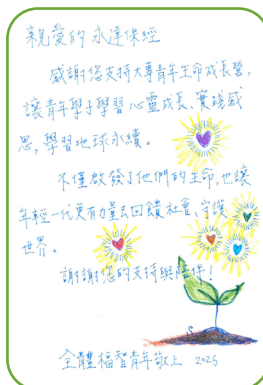 親愛的永達保經
感謝您支持大專青年生命成長營,
讓青年學子學習心靈成長、實踐感
恩,學習地球永續。
不僅啟發了他們的生命,也讓
年輕一代更有力量去回饋社會、守護
世界。
謝謝您的支持與陪伴!
全體福智青年敬上 2025